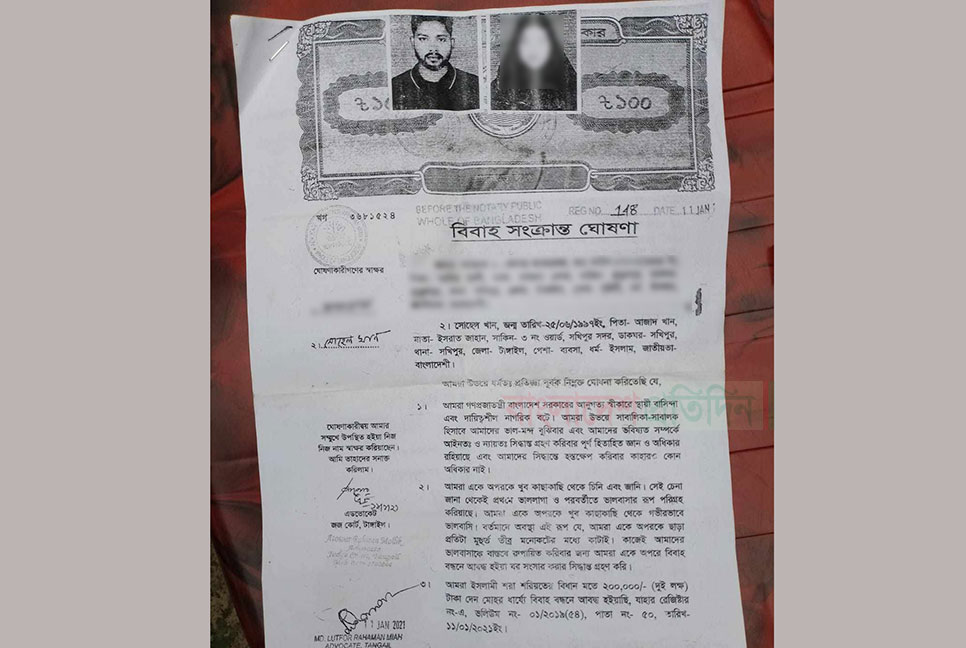 কার
৳১০
৳১০০
খগ ৩৬৮১৫২৪
BEFORE THE NOTARY PUBLIC
WHOLE OF BANGLADESH
REG NO. 118 DATE 11 JAN
বিবাহ সংক্রান্ত ঘোষণা
ঘোষণাকারীগণের স্বাক্ষর
২। সোহেল খান
২। সোহেল খান, জন্ম তারিখ-২৫/০৬/১৯৯৭ইং, পিতা- আজাদ খান,
মাতা- ইসরাত জাহান, সাকিন- ৩ নং ওয়ার্ড, সখিপুর সদর, ডাকঘর- সখিপুর,
থানা- সখিপুর, জেলা- টাঙ্গাইল, পেশা- ব্যবসা, ধর্ম- ইসলাম, জাতীয়তা-
বাংলাদেশী।
আমরা উভয়ে ধর্মতঃ প্রতিজ্ঞা পূর্বক নিম্নোক্ত ঘোষনা করিতেছি যে,
১। আমরা গণপ্রজাতন্ত্রী বাংলাদেশ সরকারের আনুগত্য স্বীকারে স্থায়ী বাসিন্দা
এবং দায়িত্বশীল নাগরিক বটে। আমরা উভয়ে সাবালিকা-সাবালক
হিসাবে আমাদের ভাল-মন্দ বুঝিবার এবং আমাদের ভবিষ্যত সম্পর্কে
আইনতঃ ও ন্যায়তঃ সিদ্ধান্ত গ্রহণ করিবার পূর্ণ হিতাহিত জ্ঞান ও অধিকার
রহিয়াছে এবং আমাদের সিদ্ধান্তে হস্তক্ষেপ করিবার কাহারও কোন
অধিকার নাই।
ঘোষণাকারীদ্বয় আমার
সম্মুখে উপস্থিত হইয়া নিজ
নিজ নাম স্বাক্ষর করিয়াছেন।
আমি তাহাদের সনাক্ত
করিলাম।
এডভোকেট
জজ কোর্ট, টাঙ্গাইল।
২। আমরা একে অপরকে খুব কাছাকাছি থেকে চিনি এবং জানি। সেই চেনা
জানা থেকেই প্রথমে ভাললাগা ও পরবর্তীতে ভালবাসার রূপ পরিগ্রহ
করিয়াছে। আমরা একে অপরকে খুব কাছাকাছি থেকে গভীরভাবে
ভালবাসি। বর্তমানে অবস্থা এই রূপ যে, আমরা একে অপরকে ছাড়া
প্রতিটা মুহুর্ত তীব্র মনোকষ্টের মধ্যে কাটাই। কাজেই আমাদের
ভালবাসাকে বাস্তবে রুপায়িত করিবার জন্য আমরা একে অপরে বিবাহ
বন্ধনে আবদ্ধ হইয়া ঘর সংসার করার সিদ্ধান্ত গ্রহণ করি।
৩। আমরা ইসলামী শরা শরিয়তের বিধান মতে ২০০,০০০/- (দুই লক্ষ)
টাকা দেন মোহর ধার্য্যে বিবাহ বন্ধনে আবদ্ধ হইয়াছি, যাহার রেজিষ্টার
নং-এ, ভলিউম নং- ০১/২০১৯(৫৪), পাতা নং- ৫০, তারিখ-
১১/০১/২০২১ইং।
11 JAN 2021
MD. LUTFOR RAHAMAN MIAH
ADVOCATE, TANGAIL